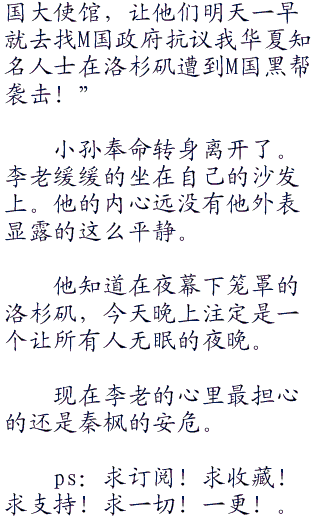 国大使馆，让他们明天一早
就去找M国政府抗议我华夏知
名人士在洛杉矶遭到M国黑帮
袭击！”
小孙奉命转身离开了。
李老缓缓的坐在自己的沙发
上。他的内心远没有他外表
显露的这么平静。
他知道在夜幕下笼罩的
洛杉矶，今天晚上注定是一
个让所有人无眠的夜晚。
现在李老的心里最担心
的还是秦枫的安危。
ps：求订阅！求收藏！
求支持！求一切！一更！。